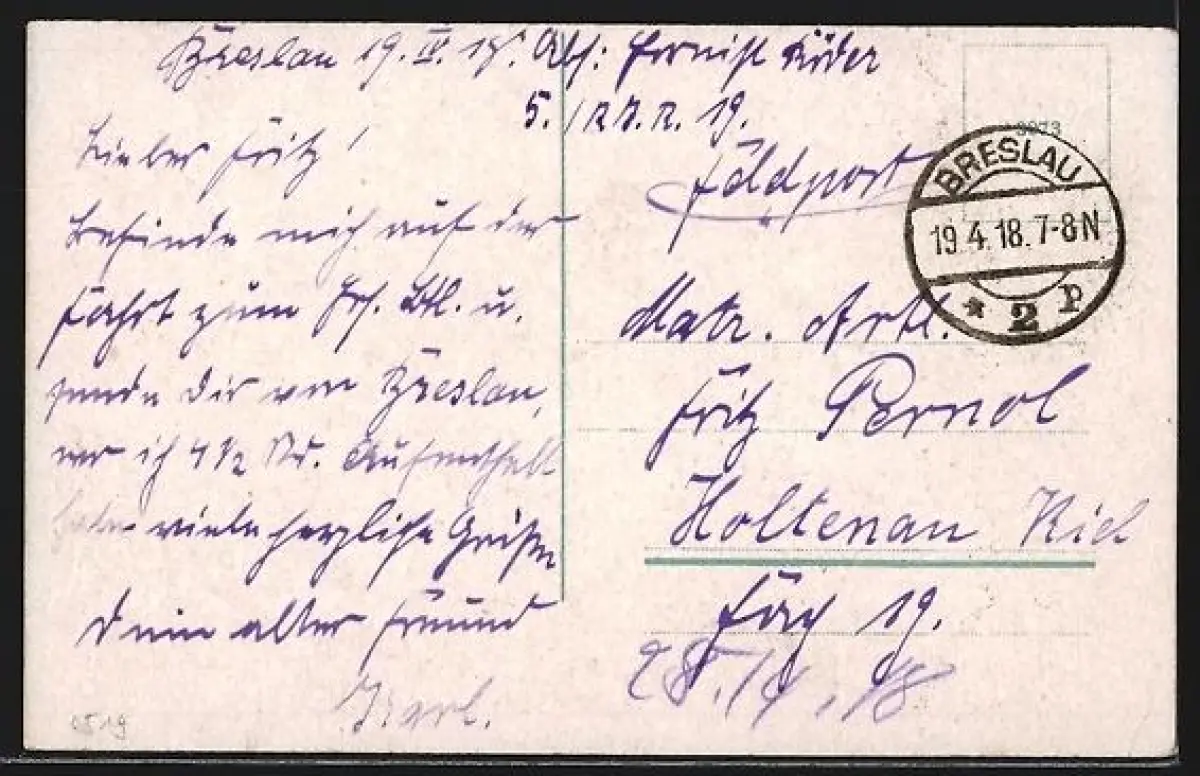 Breslau 19. IV. 18. Abs: Hornist Röder
5. / R. 19.
Lieber Fritz!
Befinde mich auf der
Fahrt zum Ers. Btl. u.
sende Dir von Breslau,
wo ich 4 1/2 Std. Aufenthalt
habe viele herzliche Grüße
Dein alter Freund
Karl.
Feldpost
Matr. Artl.
Fritz Pernol
Holtenau Kiel
Fach 19.
BRESLAU
19.4.18.7-8N
* 2 b